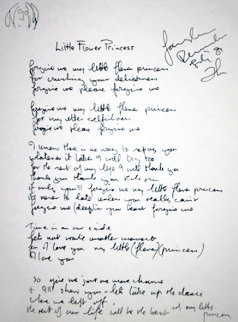 Little Flower Princess
forgive me my little flower princess
for crushing your delicateness
forgive me please forgive me
forgive me my little flower princess
for my utter selfishness
forgive me please forgive me
I know there is no way to repay you
whatever it takes I will try to
for the rest of my life I will thank you
thank you thank you
if only you'll forgive me my little flower princess
never to late unless you really can't
forgive me if
Time is on our side
lets not waste another moment
for I love you my little (flower) (princess)
I love you
So give me just one more chance
I'll show you let's take up the dance
where we left off
The rest of our life will be the best of my little
princess